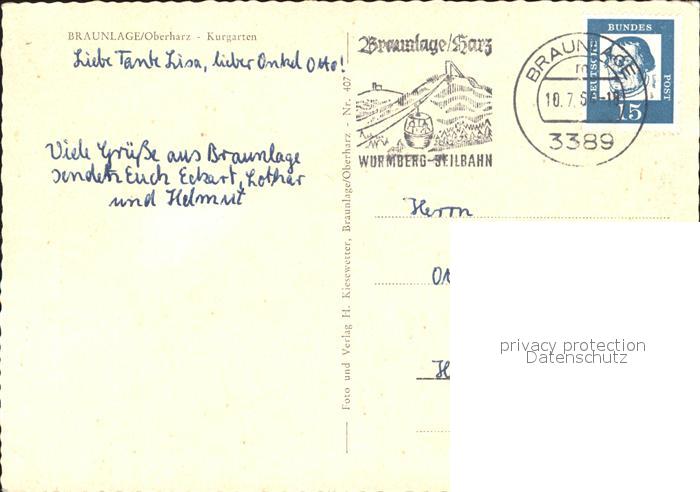 BRAUNLAGE/Oberharz - Kurgarten
Liebe Tante Lisa, lieber Onkel Otto!
Viele Grüße aus Braunlage
senden Euch Eckart, Lothar
und Helmut
Foto und Verlag H. Kiesewetter, Braunlage/Oberharz - Nr. 407
Braunlage/Harz
WURMBERG-SEILBAHN
BRAUNLAGE
10.7.6
3389
DEUTSCHE
BUNDES
POST
15
Herrn
privacy protection
Datenschutz